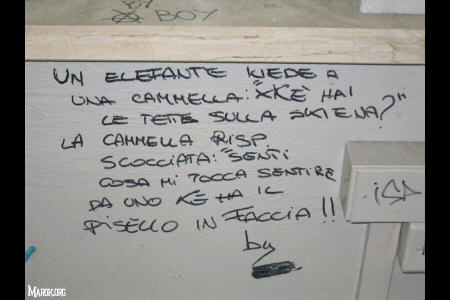 BY
BOY
UN ELEFANTE KIEDE A
UNA CAMMELLA: "XKÈ HAI
LE TETTE SULLA SKIENA?"
LA CAMMELLA RISP.
SCOCCIATA: "SENTI
COSA MI TOCCA SENTIRE
DA UNO KE HA IL
PISELLO IN FACCIA!!
by
MAROK.ORG